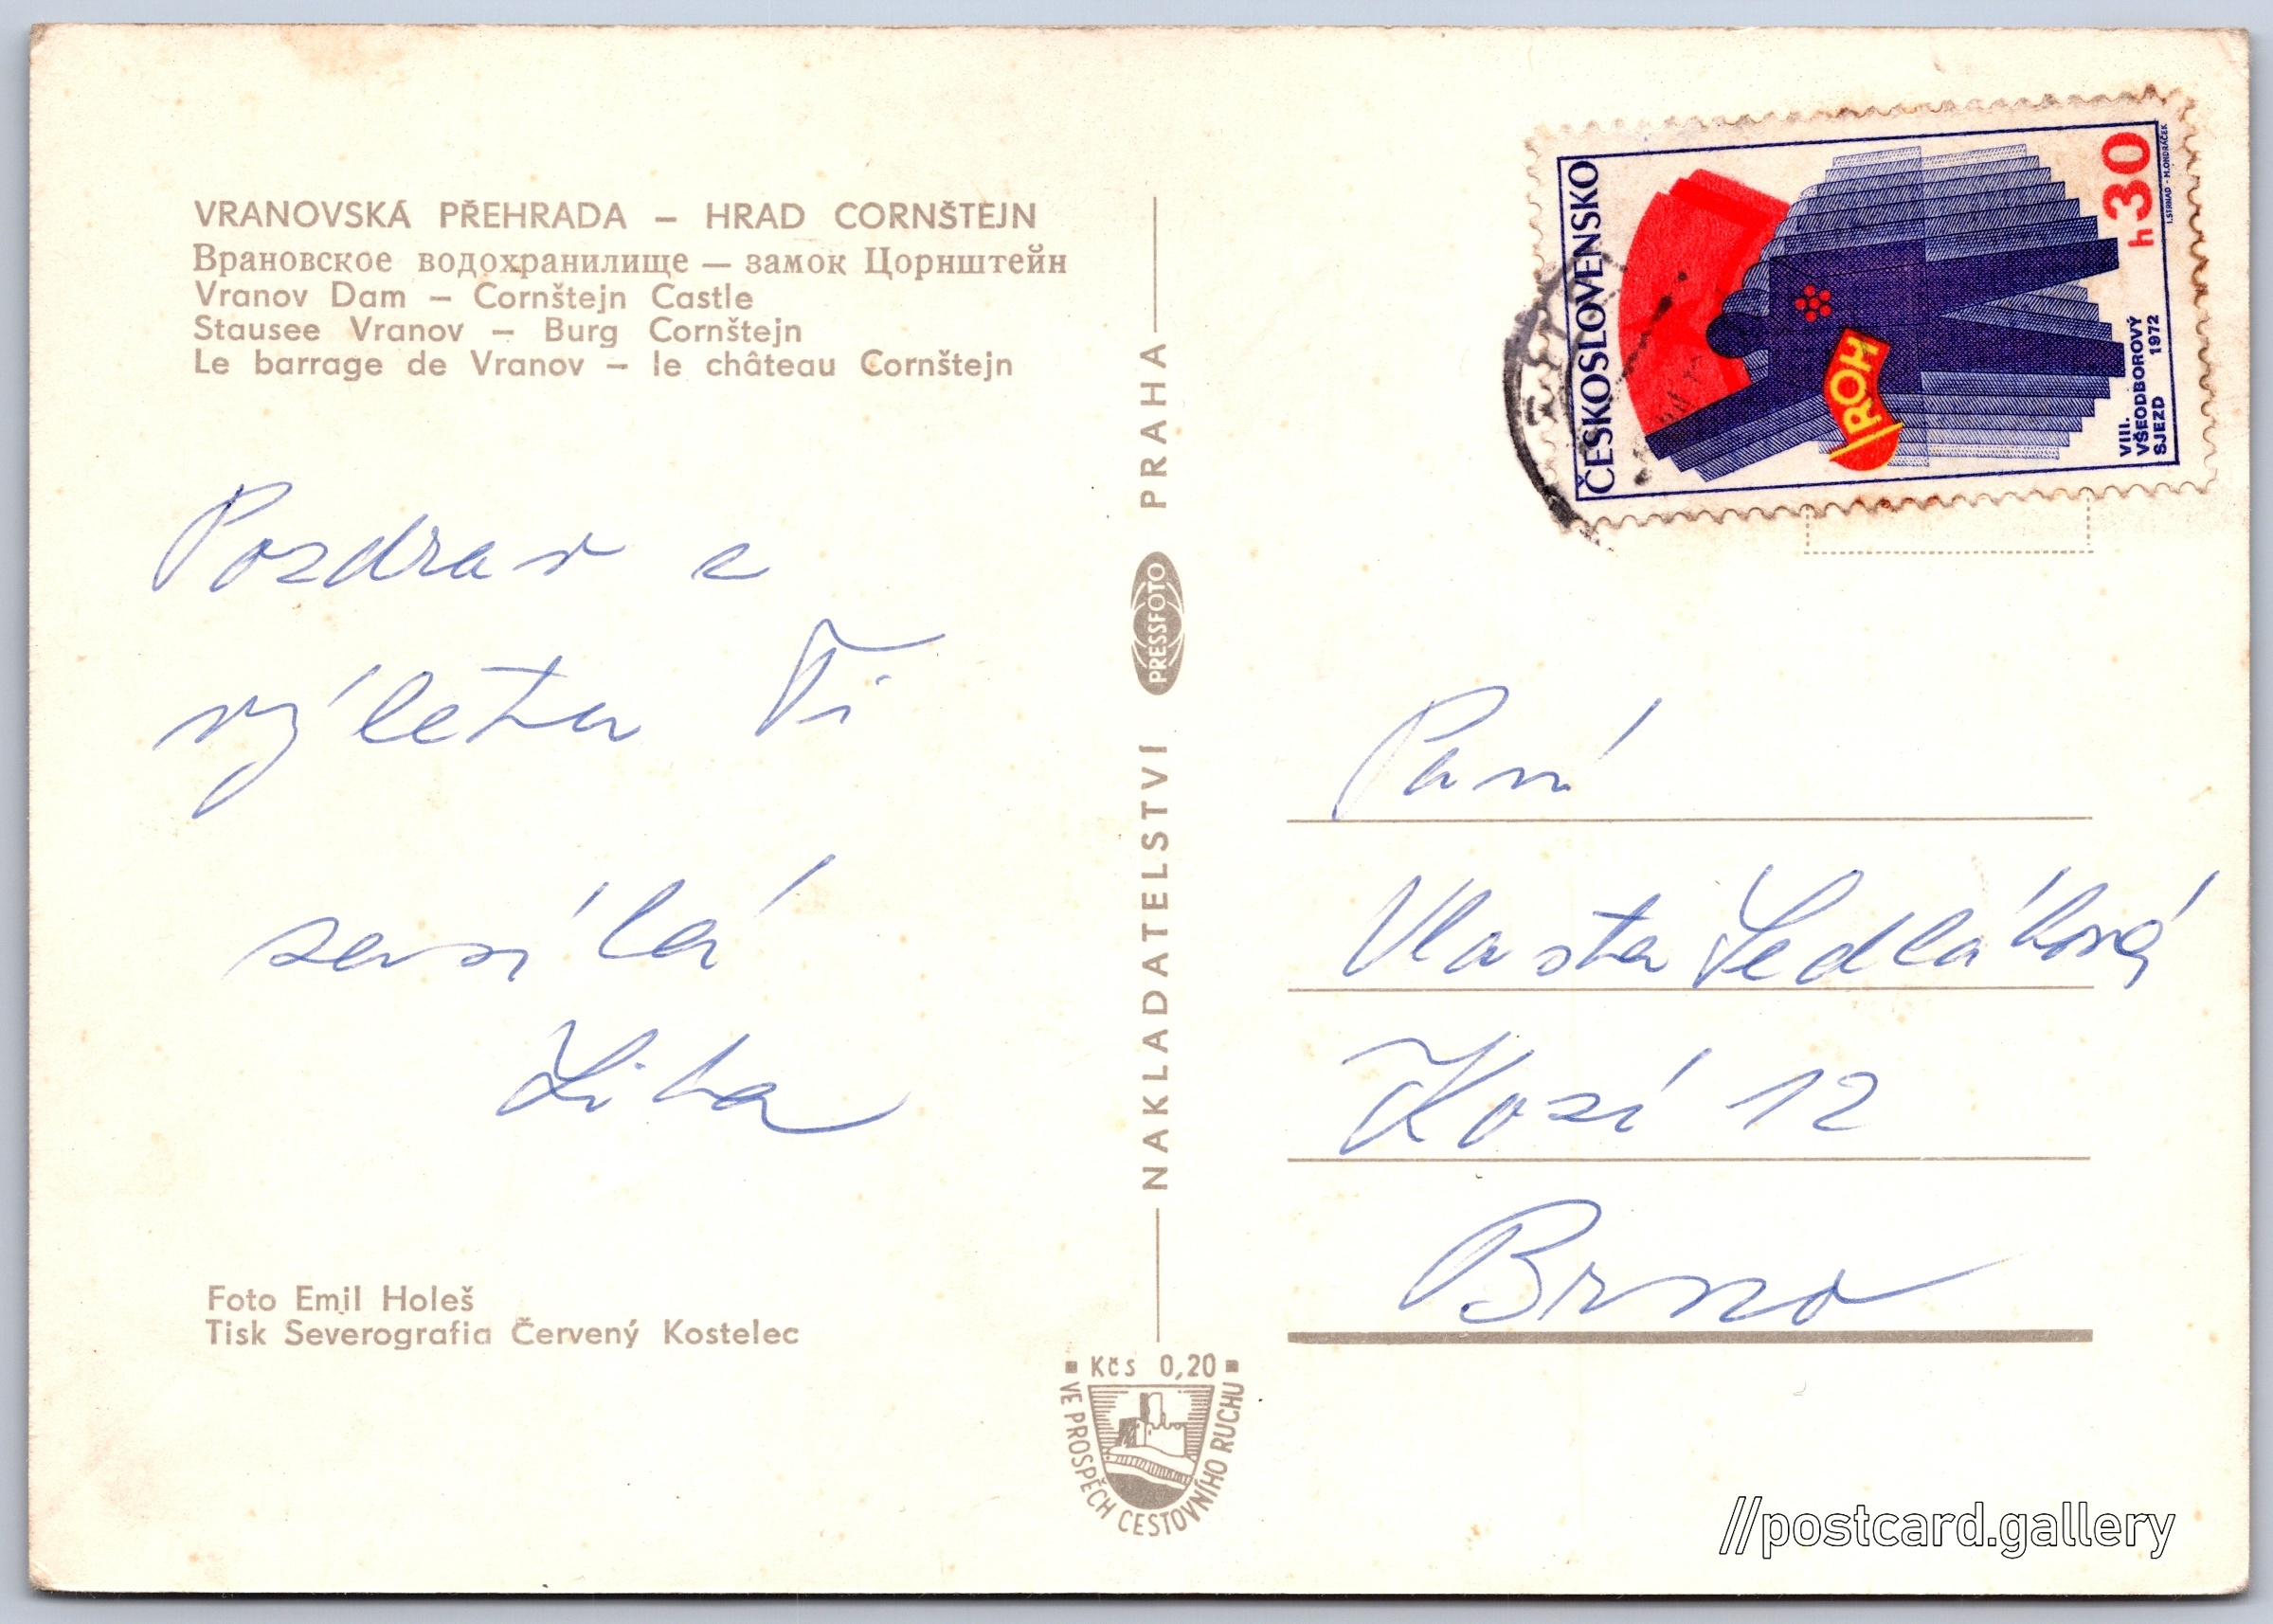 VRANOVSKÁ PŘEHRADA – HRAD CORNŠTEJN
Врановское водохранилище — замок Цорнштейн
Vranov Dam – Cornštejn Castle
Stausee Vranov – Burg Cornštejn
Le barrage de Vranov – le château Cornštejn
Pozdrav z
výletu Ti
zasílá
Liba
Foto Emil Holeš
Tisk Severografia Červený Kostelec
NAKLADATELSTVÍ PRESSFOTO PRAHA
Kčs 0,20
VE PROSPĚCH CESTOVNÍHO RUCHU
ČESKOSLOVENSKO
ROH
30 h
VIII.
VŠEODBOROVÝ
SJEZD 1972
I. STRNAD - M. ONDRÁČEK
Paní
Vlasta Sedláková
Kozí 12
Brno
//postcard.gallery